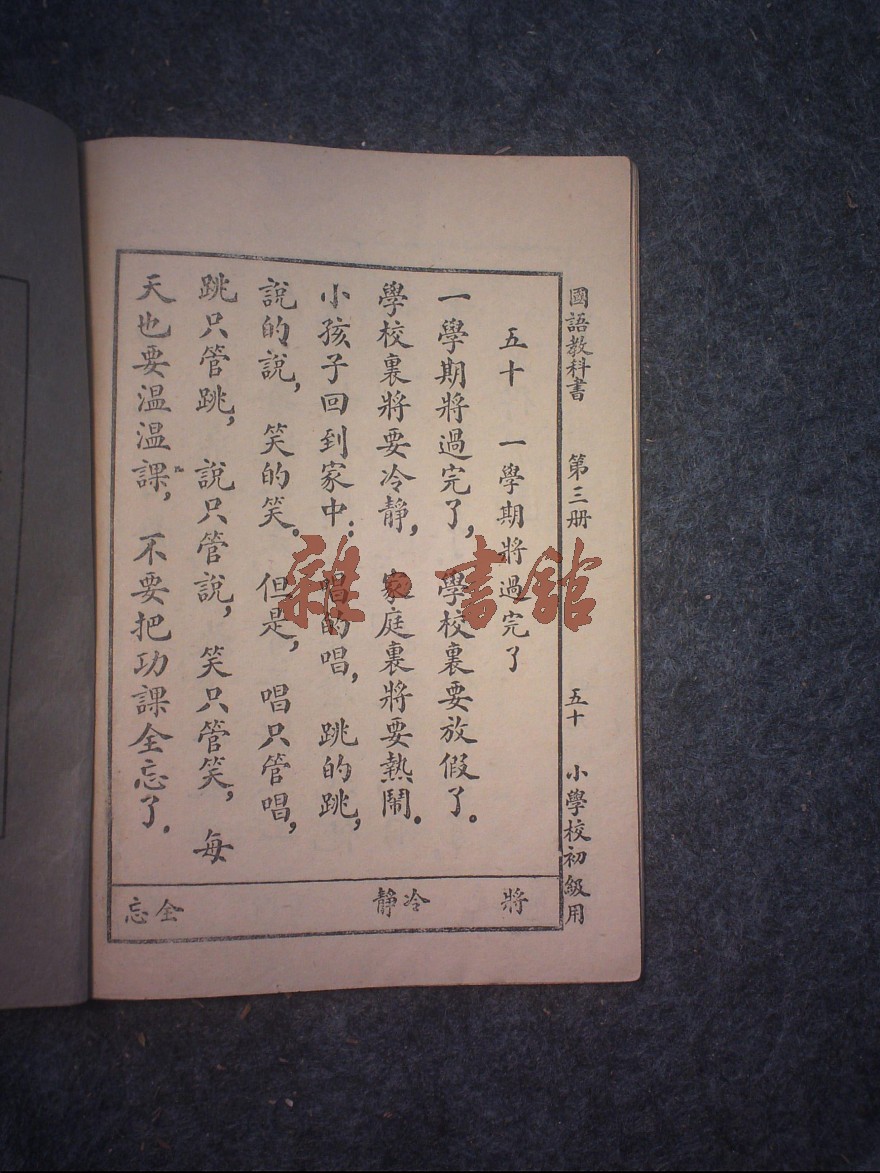 國語教科書 第三册 五十 小學校初級用
五十 一學期將過完了
一學期將過完了，學校裏要放假了。
學校裏將要冷靜，家庭裏將要熱鬧。
小孩子回到家中：唱的唱，跳的跳，
說的說，笑的笑。但是，唱只管唱，
跳只管跳，說只管說，笑只管笑，每
天也要溫溫課，不要把功課全忘了。
將
冷靜
全忘
雜·書館